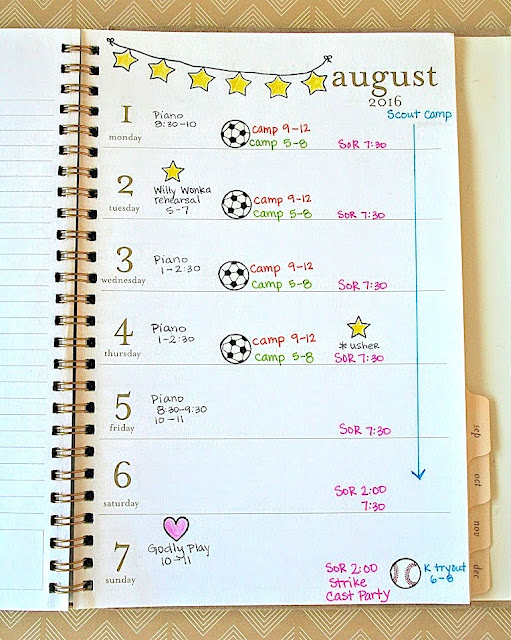 august
2016
Scout Camp
1
monday
Piano
8:30-10
camp 9-12
camp 5-8
SOR 7:30
2
tuesday
Willy Wonka
rehearsal
5-7
camp 9-12
camp 5-8
SOR 7:30
3
wednesday
Piano
1-2:30
camp 9-12
camp 5-8
SOR 7:30
4
thursday
Piano
1-2:30
camp 9-12
camp 5-8
* usher
SOR 7:30
5
friday
Piano
8:30-9:30
10-11
SOR 7:30
6
saturday
SOR 2:00
7:30
7
sunday
Godly Play
10→11
SOR 2:00
Strike
Cast Party
K tryout
6-8
sep
oct
nov
dec